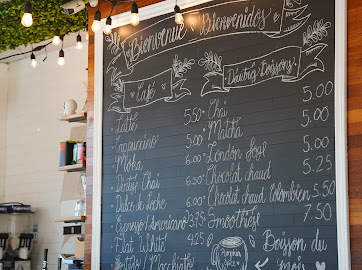 Bienvenue Bienvenidos
Café
Latté 5.50
Capuccino 5.50
Moka 6.00
Dirty Chai 6.00
Dulce de Leche 6.00
Espresso/Americano 3.75
Flat White 4.25
Autres Boissons
Chai 5.00
Matcha 5.00
London fog 5.00
Chocolat chaud 5.25
Chocolat chaud Colombien 5.50
Smoothies 7.50
Boisson du
mois
Pumpkin
Spice